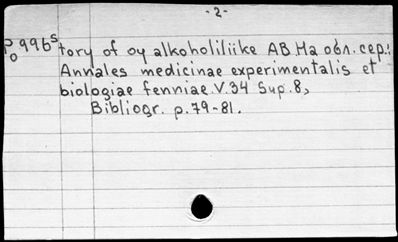 -2-
Po 996s tory of oy alkoholiliike AB На обл. сер.:
Annales medicinae experimentalis et
biologiae fenniae. V.34 Sup.8,
Bibliogr. p.79-81.